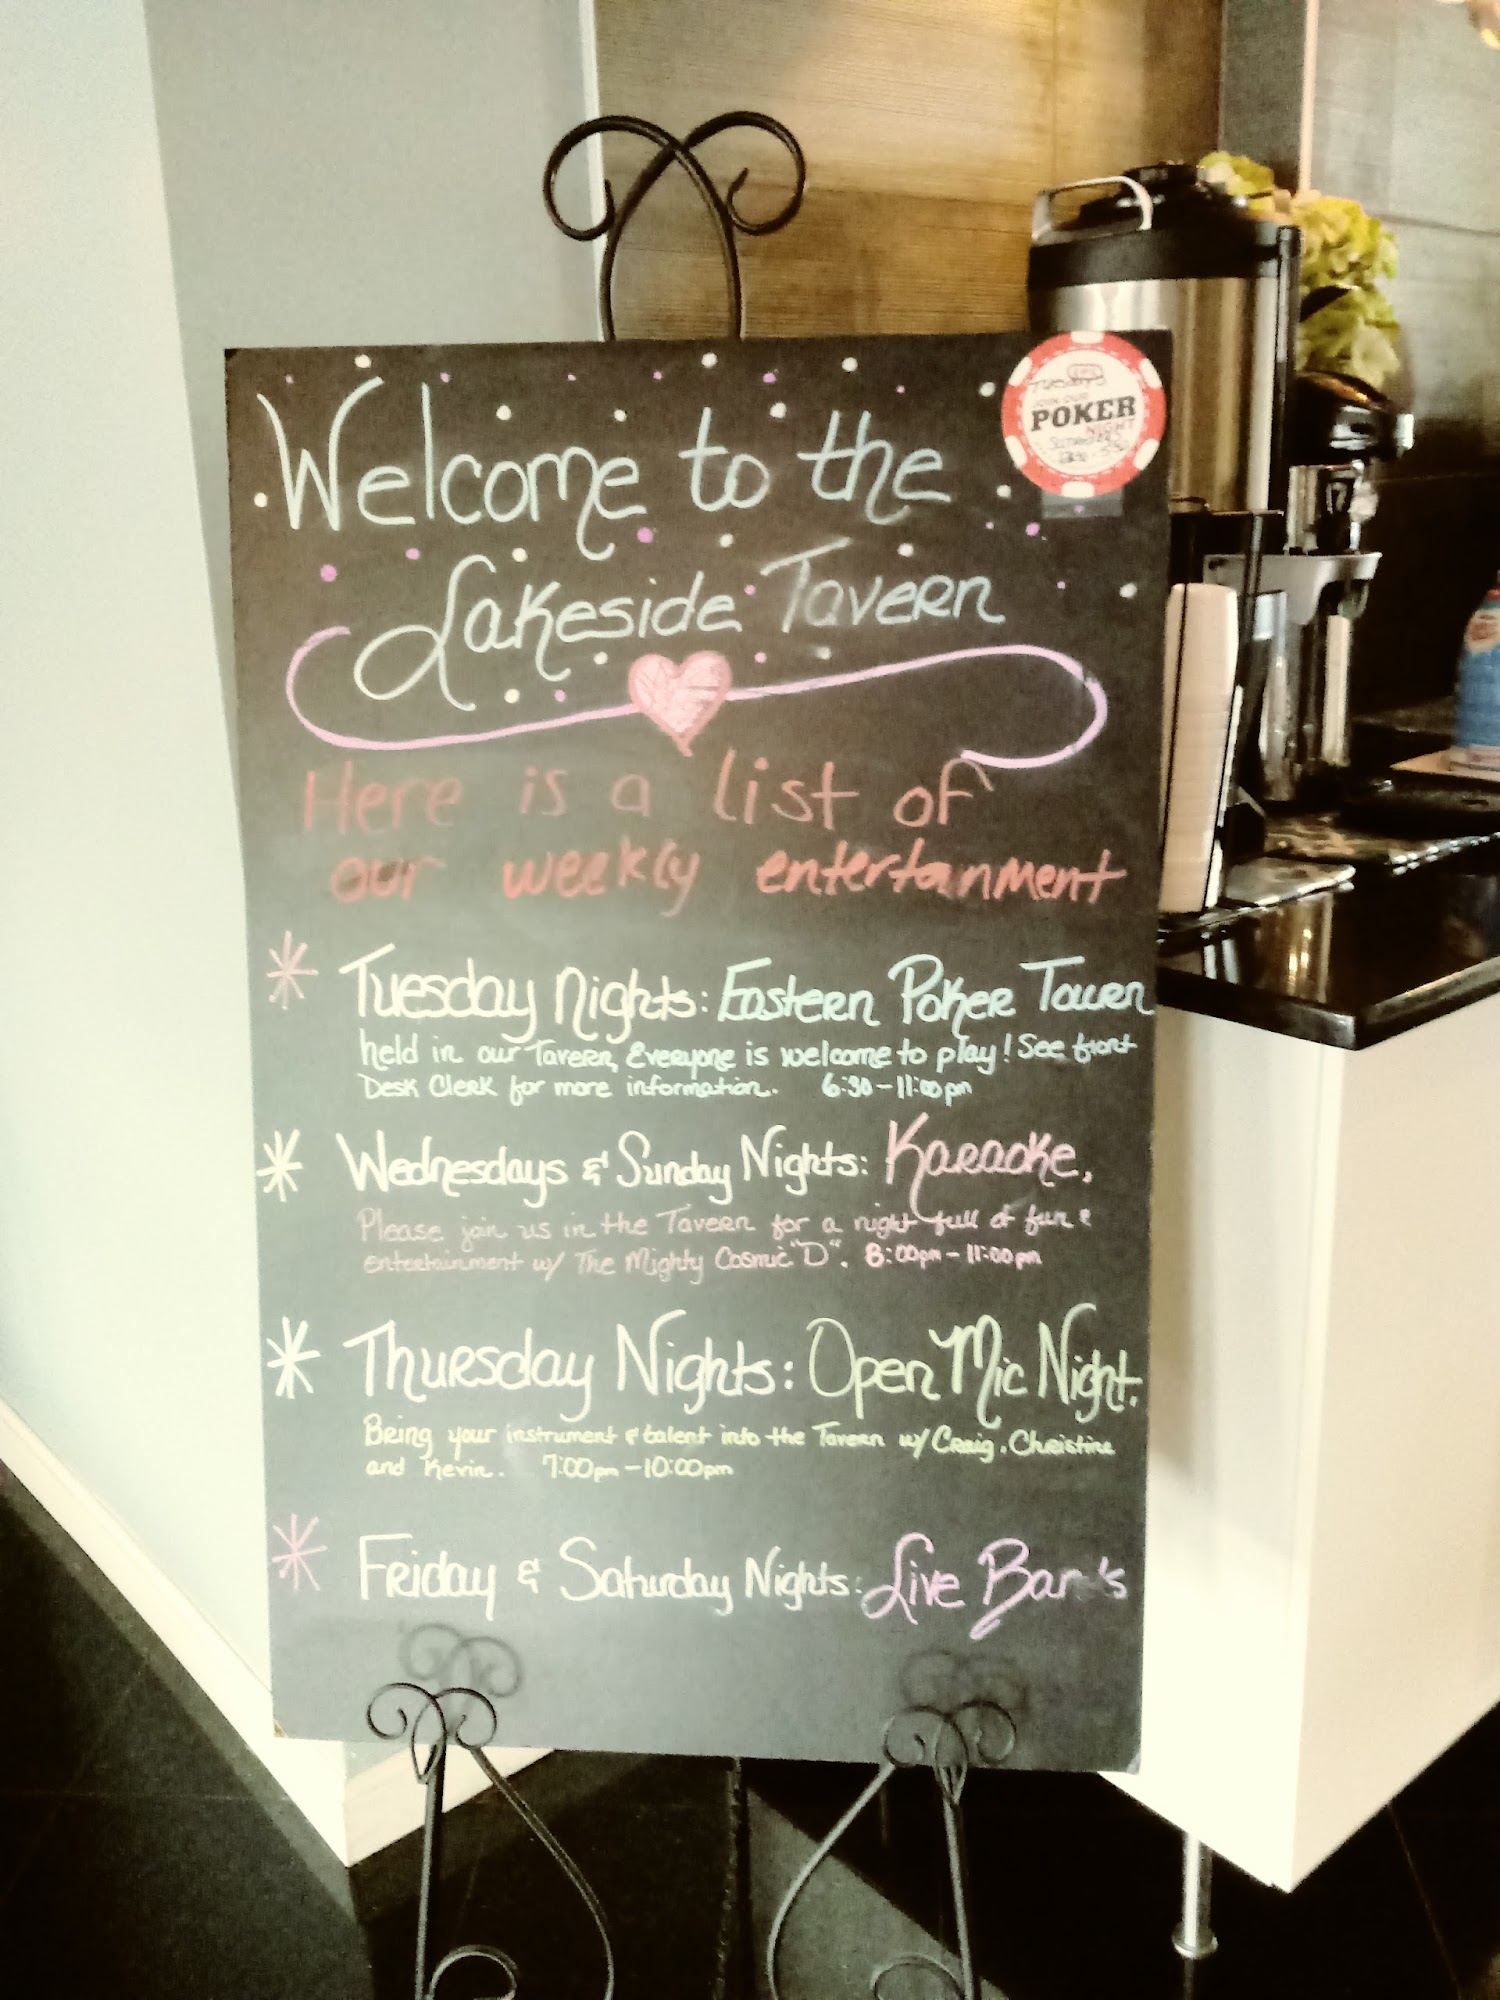 Welcome to the
Lakeside Tavern
TUESDAYS
JOIN OUR
POKER
NIGHT
Here is a list of
our weekly entertainment
Tuesday Nights: Eastern Poker Tourn
held in our Tavern, Everyone is welcome to play! See front
Desk Clerk for more information. 6:30-11:00pm
Wednesdays & Sunday Nights: Karaoke,
Please join us in the Tavern for a night full of fun &
entertainment w/ The Mighty Cosmic "D". 8:00pm-11:00pm
Thursday Nights: Open Mic Night.
Bring your instrument & talent into the Tavern w/ Craig, Christine
and Kevin. 7:00pm-10:00pm
Friday & Saturday Nights: Live Ban's